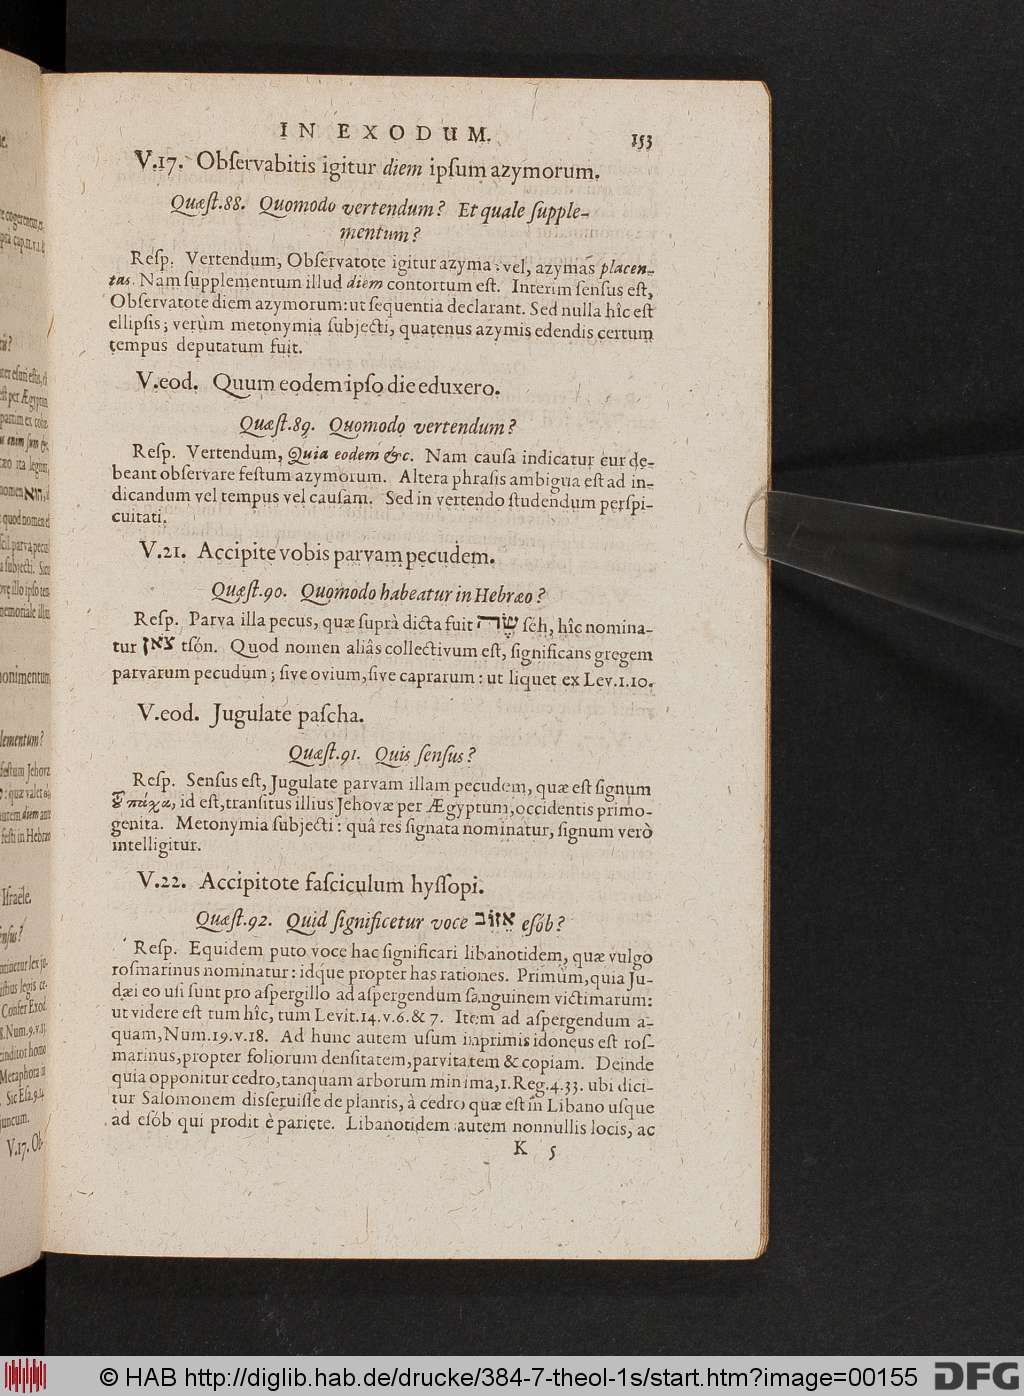 IN EXODUM. 153
V.17. Obſervabitis igitur diem ipſum azymorum.
Quæſt.88. Quomodo vertendum? Et quale ſupple-
mentum?
Reſp. Vertendum, Obſervatote igitur azyma: vel, azymas placen-
tas. Nam ſupplementum illud diem contortum eſt. Interim ſenſus eſt,
Obſervatote diem azymorum: ut ſequentia declarant. Sed nulla hîc eſt
ellipſis; verùm metonymia ſubjecti, quatenus azymis edendis certum
tempus deputatum fuit.
V.eod. Quum eodem ipſo die eduxero.
Quæſt.89. Quomodo vertendum?
Reſp. Vertendum, Quia eodem &c. Nam cauſa indicatur cur de-
beant obſervare feſtum azymorum. Altera phraſis ambigua eſt ad in-
dicandum vel tempus vel cauſam. Sed in vertendo ſtudendum perſpi-
cuitati.
V.21. Accipite vobis parvam pecudem.
Quæſt.90. Quomodo habeatur in Hebræo?
Reſp. Parva illa pecus, quæ ſuprà dicta fuit שֶׂה ſéh, hîc nomina-
tur צאן tſón. Quod nomen aliâs collectivum eſt, ſignificans gregem
parvarum pecudum; ſive ovium, ſive caprarum: ut liquet ex Lev.1.10.
V.eod. Jugulate paſcha.
Quæſt.91. Quis ſenſus?
Reſp. Senſus eſt, Jugulate parvam illam pecudem, quæ eſt ſignum
πάχα, id eſt, tranſitus illius Jehovæ per Ægyptum, occidentis primo-
genita. Metonymia ſubjecti: quâ res ſignata nominatur, ſignum verò
intelligitur.
V.22. Accipitote faſciculum hyſſopi.
Quæſt.92. Quid ſignificetur voce אזוֹב eſób?
Reſp. Equidem puto voce hac ſignificari libanotidem, quæ vulgò
roſmarinus nominatur: idque propter has rationes. Primùm, quia Ju-
dæi eo uſi ſunt pro aſpergillo ad aſpergendum ſanguinem victimarum:
ut videre eſt tum hîc, tum Levit.14.v.6.& 7. Item ad aſpergendum a-
quam, Num.19.v.18. Ad hunc autem uſum inprimis idoneus eſt roſ-
marinus, propter foliorum denſitatem, parvitatem & copiam. Deinde
quia opponitur cedro, tanquam arborum minima, 1.Reg.4.33. ubi dici-
tur Salomonem diſſeruiſſe de plantis, à cedro quæ eſt in Libano uſque
ad eſób qui prodit è pariete. Libanotidem autem nonnullis locis, ac
K 5
© HAB http://diglib.hab.de/drucke/384-7-theol-1s/start.htm?image=00155 DFG